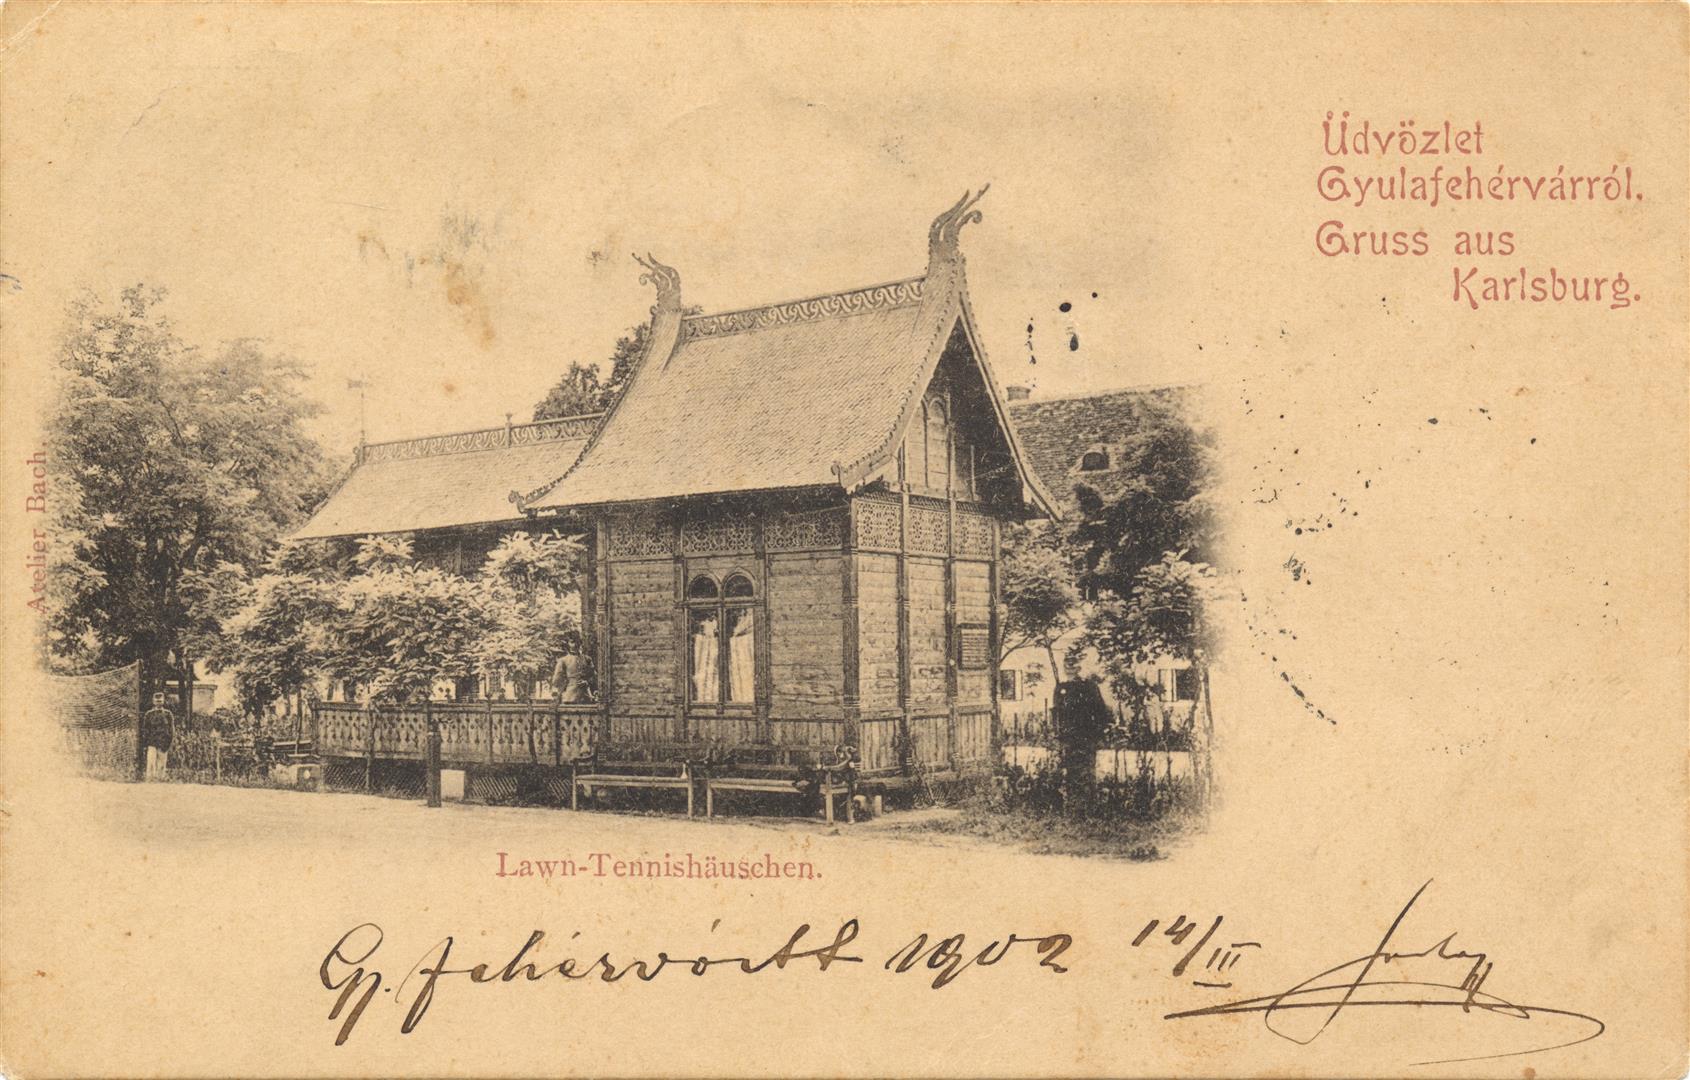 Üdvözlet
Gyulafehérvárról.
Gruss aus
Karlsburg.
Atelier Bach.
Lawn-Tennishäuschen.
Gy. fehérvártt 1902 14/III